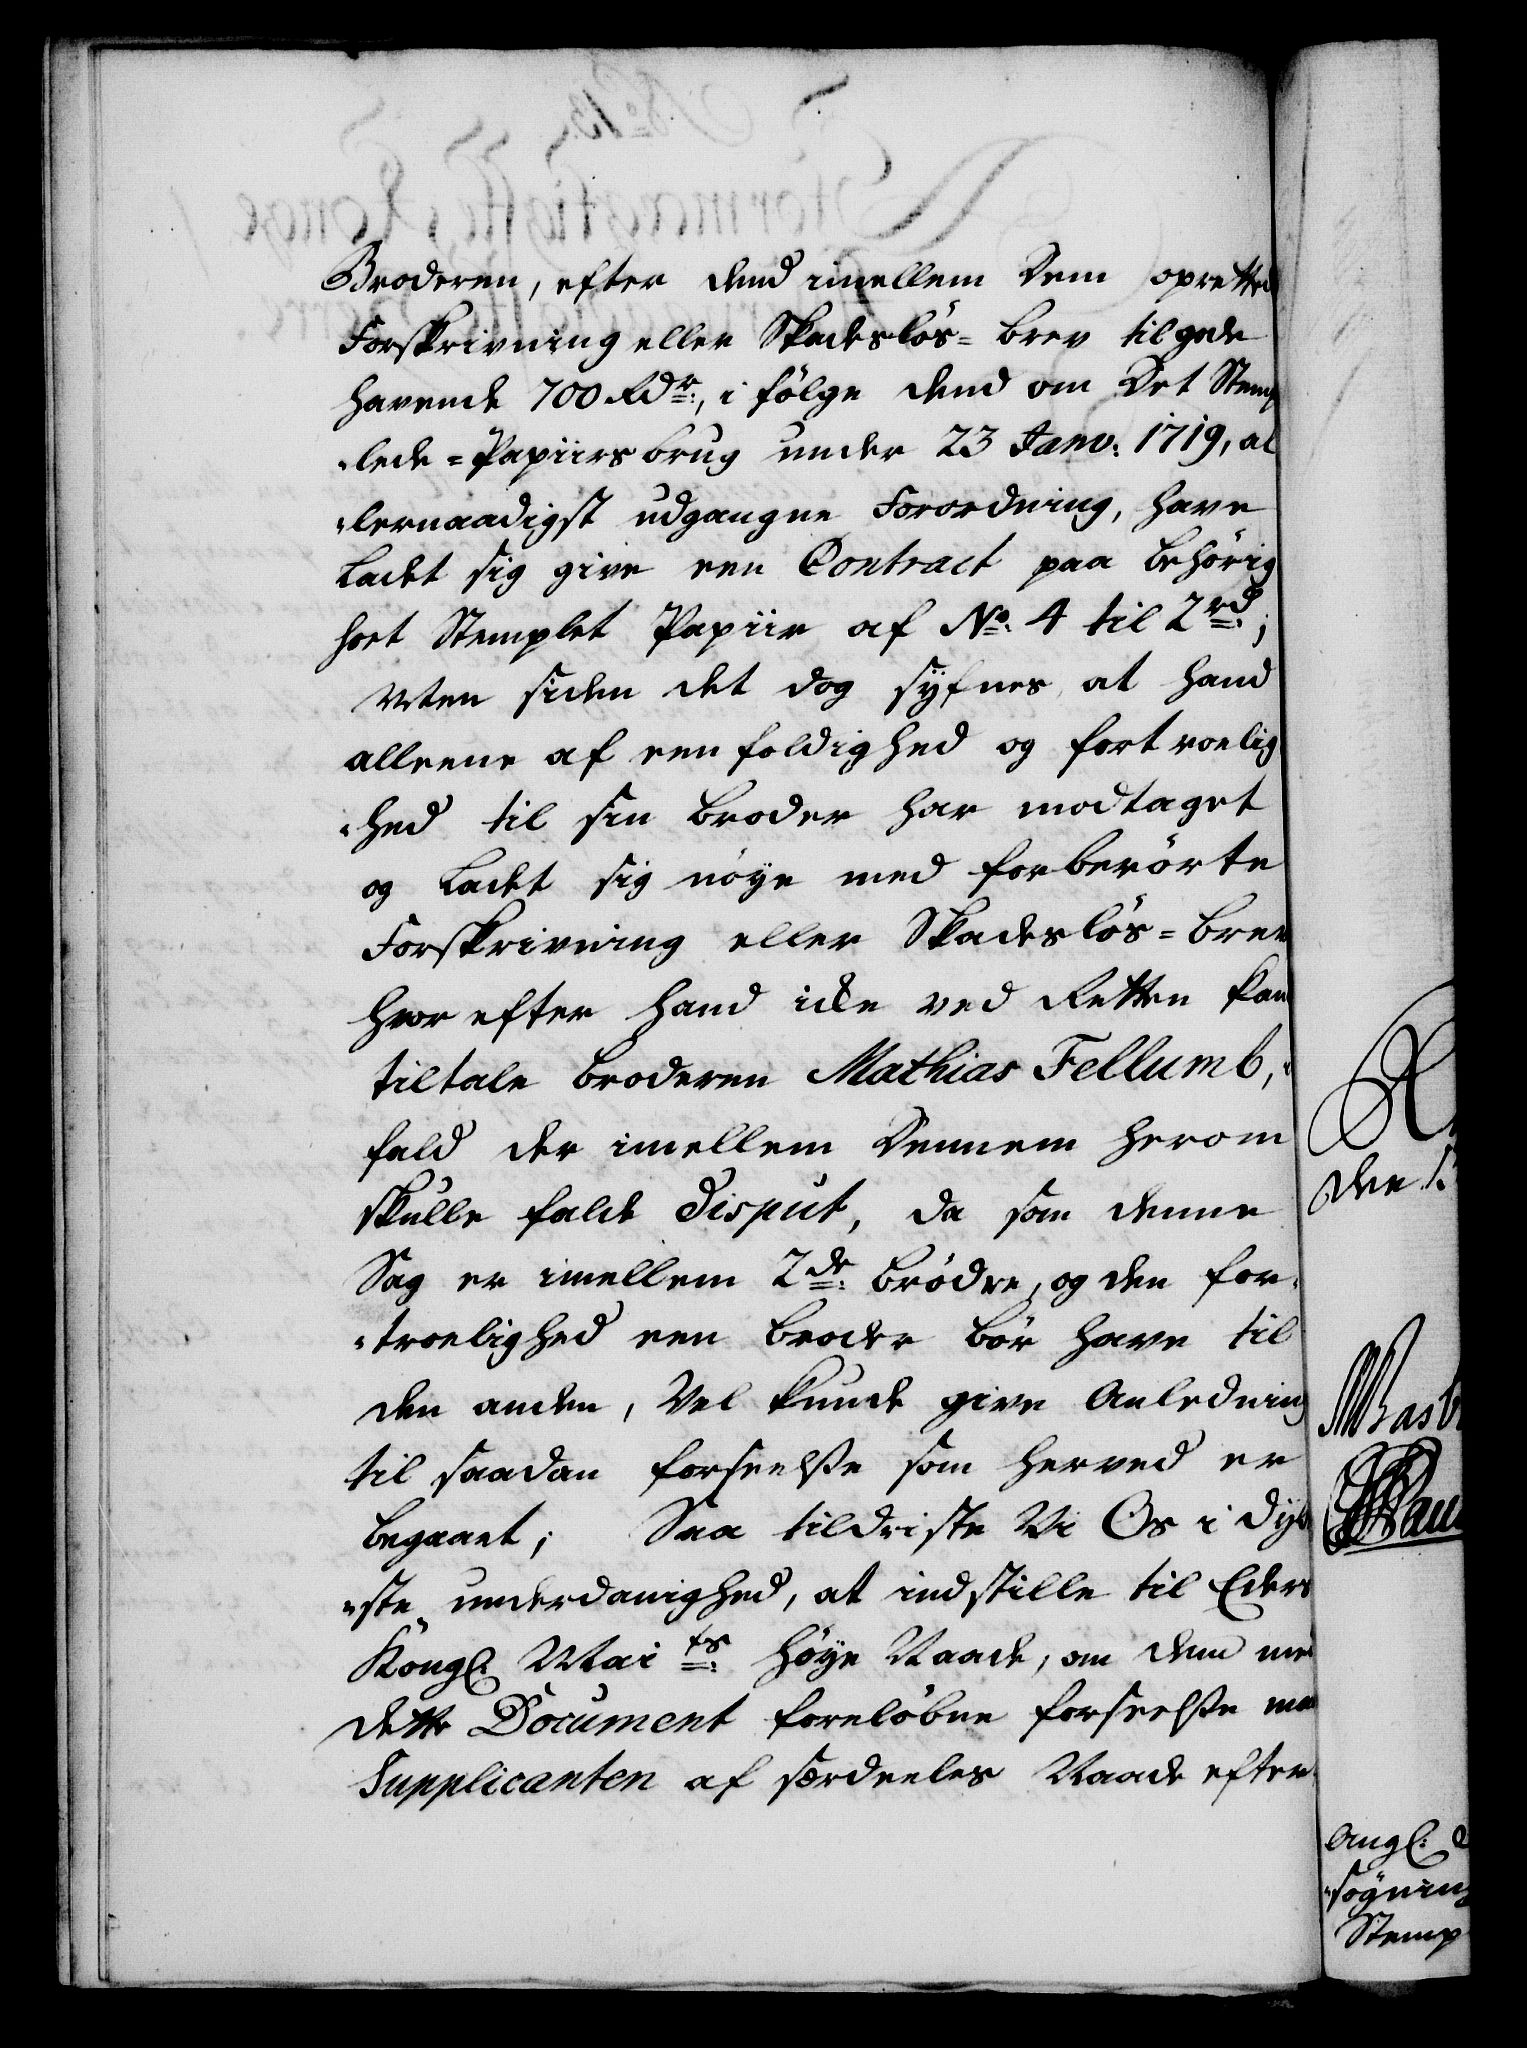 Broderen, efter dend imellem Dem opretted
Forskrivning eller Skadeslös= brev tilgode
havende 700 Rdr:, i fölge dend om Det Stemp
lede = Papiirs brug under 23 Janv: 1719, al
lernaadigst udgangne Forordning, have
ladet sig give een Contract paa behörig
hort Stemplet Papiir af No: 4 til 2rd:;
Men siden det dog syfnes at hand
alleene af eenfoldighed og fortroelig
hed til sin broder har modtaget
og ladet sig nöye med forberörte
Forskrivning eller Skadeslös= brev
hvor efter hand icke ved Retten kan
tiltale broderen Mathias Fellumb,
fald der imellem Dennem herom
skulle falde Disput, da som denne
Sag er imellem 2de: brödre, og den for
troelighed een broder bör have til
den anden, Vel kunde give Anledning
til saadan forseelsse som herved er
begaaet; Saa tildriste Vi Os i dyb
ste underdanighed, at indstille til Eders
Kongl: Mai ts: höye Naade, om dend med
dette Document foreløbne forseelsse maa
Supplicanten af særdeeles Naade efter
den 1.
Angl:
sögning
Stemp